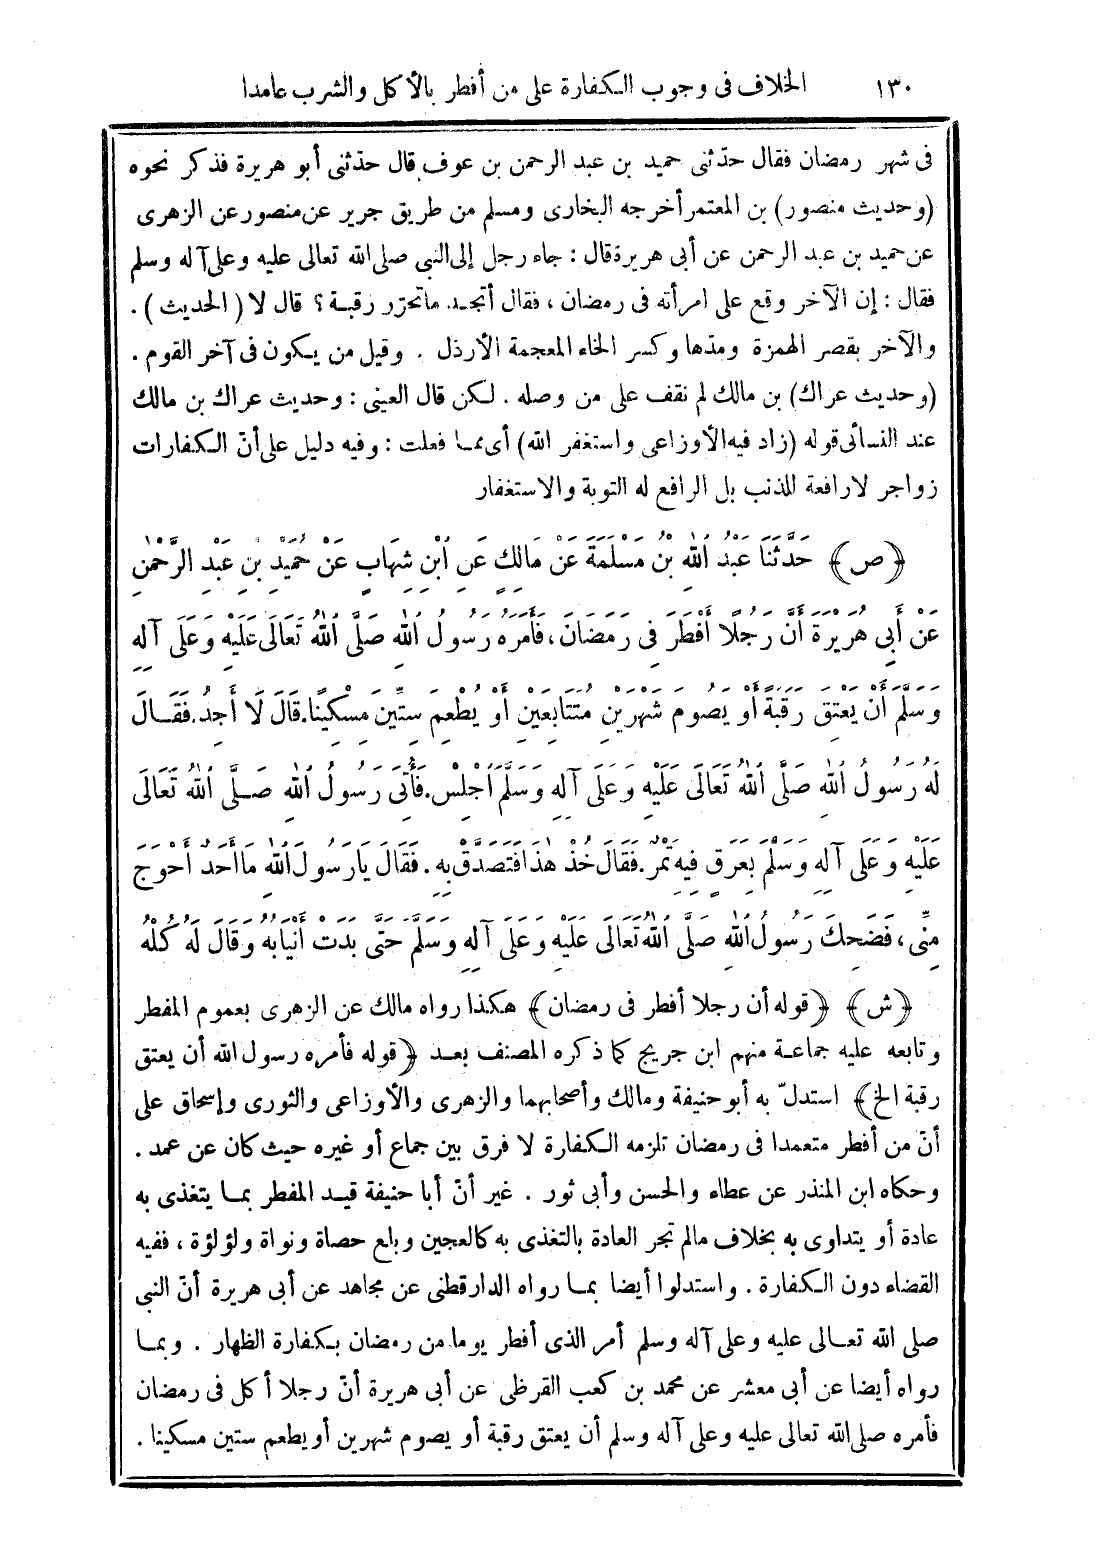 ١٣٠ الخلاف فى وجوب الكفارة على من أفطر بالأكل والشرب عامدا
فى شهر رمضان فقال حدّثنى حميد بن عبد الرحمن بن عوف قال حدّثنى أبو هريرة فذكر نحوه
(وحديث منصور) بن المعتمر أخرجه البخارى ومسلم من طريق جرير عن منصور عن الزهرى
عن حميد بن عبد الرحمن عن أبى هريرة قال : جاء رجل إلى النبى صلى الله تعالى عليه وعلى آله وسلم
فقال : إن الآخر وقع على امرأته فى رمضان ، فقال أتجد ماتحرّر رقبة ؟ قال لا ( الحديث ) .
والآخر بقصر الهمزة ومدّها وكسر الخاء المعجمة الأرذل . وقيل من يكون فى آخر القوم .
(وحديث عراك) بن مالك لم نقف على من وصله . لكن قال العينى : وحديث عراك بن مالك
عند النسائى قوله (زاد فيه الأوزاعى واستغفر الله) أى مما فعلت : وفيه دليل على أنّ الكفارات
زواجر لا رافعة للذنب بل الرافع له التوبة والاستغفار
﴿ ص ﴾ حَدَّثَنَا عَبْدُ اللهِ بْنُ مَسْلَمَةَ عَنْ مَالِكٍ عَنِ ابْنِ شِهَابٍ عَنْ حُمَيْدِ بْنِ عَبْدِ الرَّحْمٰنِ
عَنْ أَبِي هُرَيْرَةَ أَنَّ رَجُلًا أَفْطَرَ فِي رَمَضَانَ، فَأَمَرَهُ رَسُولُ اللهِ صَلَّى اللهُ تَعَالَى عَلَيْهِ وَعَلَى آلِهِ
وَسَلَّمَ أَنْ يَعْتِقَ رَقَبَةً أَوْ يَصُومَ شَهْرَيْنِ مُتَتَابِعَيْنِ أَوْ يُطْعِمَ سِتِّينَ مِسْكِينًا. قَالَ لَا أَجِدُ. فَقَالَ
لَهُ رَسُولُ اللهِ صَلَّى اللهُ تَعَالَى عَلَيْهِ وَعَلَى آلِهِ وَسَلَّمَ اجْلِسْ. فَأُتِيَ رَسُولُ اللهِ صَلَّى اللهُ تَعَالَى
عَلَيْهِ وَعَلَى آلِهِ وَسَلَّمَ بِعَرَقٍ فِيهِ تَمْرٌ. فَقَالَ خُذْ هٰذَا فَتَصَدَّقْ بِهِ. فَقَالَ يَا رَسُولَ اللهِ مَا أَحَدٌ أَحْوَجَ
مِنِّي، فَضَحِكَ رَسُولُ اللهِ صَلَّى اللهُ تَعَالَى عَلَيْهِ وَعَلَى آلِهِ وَسَلَّمَ حَتَّى بَدَتْ أَنْيَابُهُ وَقَالَ لَهُ كُلْهُ
﴿ ش ﴾ ﴿ قوله أن رجلا أفطر فى رمضان ﴾ هكذا رواه مالك عن الزهرى بعموم المفطر
وتابعه عليه جماعة منهم ابن جريج كما ذكره المصنف بعد ﴿ قوله فأمره رسول الله أن يعتق
رقبة الخ ﴾ استدلّ به أبو حنيفة ومالك وأصحابهما والزهرى والأوزاعى والثورى وإسحاق على
أنّ من أفطر متعمدا فى رمضان تلزمه الكفارة لا فرق بين جماع أو غيره حيث كان عن عمد .
وحكاه ابن المنذر عن عطاء والحسن وأبى ثور . غير أنّ أبا حنيفة قيد المفطر بما يتغذى به
عادة أو يتداوى به بخلاف مالم تجر العادة بالتغذى به كالعجين وبلع حصاة ونواة ولؤلؤة ، ففيه
القضاء دون الكفارة . واستدلوا أيضا بما رواه الدارقطنى عن مجاهد عن أبى هريرة أنّ النبى
صلى الله تعالى عليه وعلى آله وسلم أمر الذى أفطر يوما من رمضان بكفارة الظهار . وبما
رواه أيضا عن أبى معشر عن محمد بن كعب القرظى عن أبى هريرة أنّ رجلا أكل فى رمضان
فأمره صلى الله تعالى عليه وعلى آله وسلم أن يعتق رقبة أو يصوم شهرين أو يطعم ستين مسكينا .